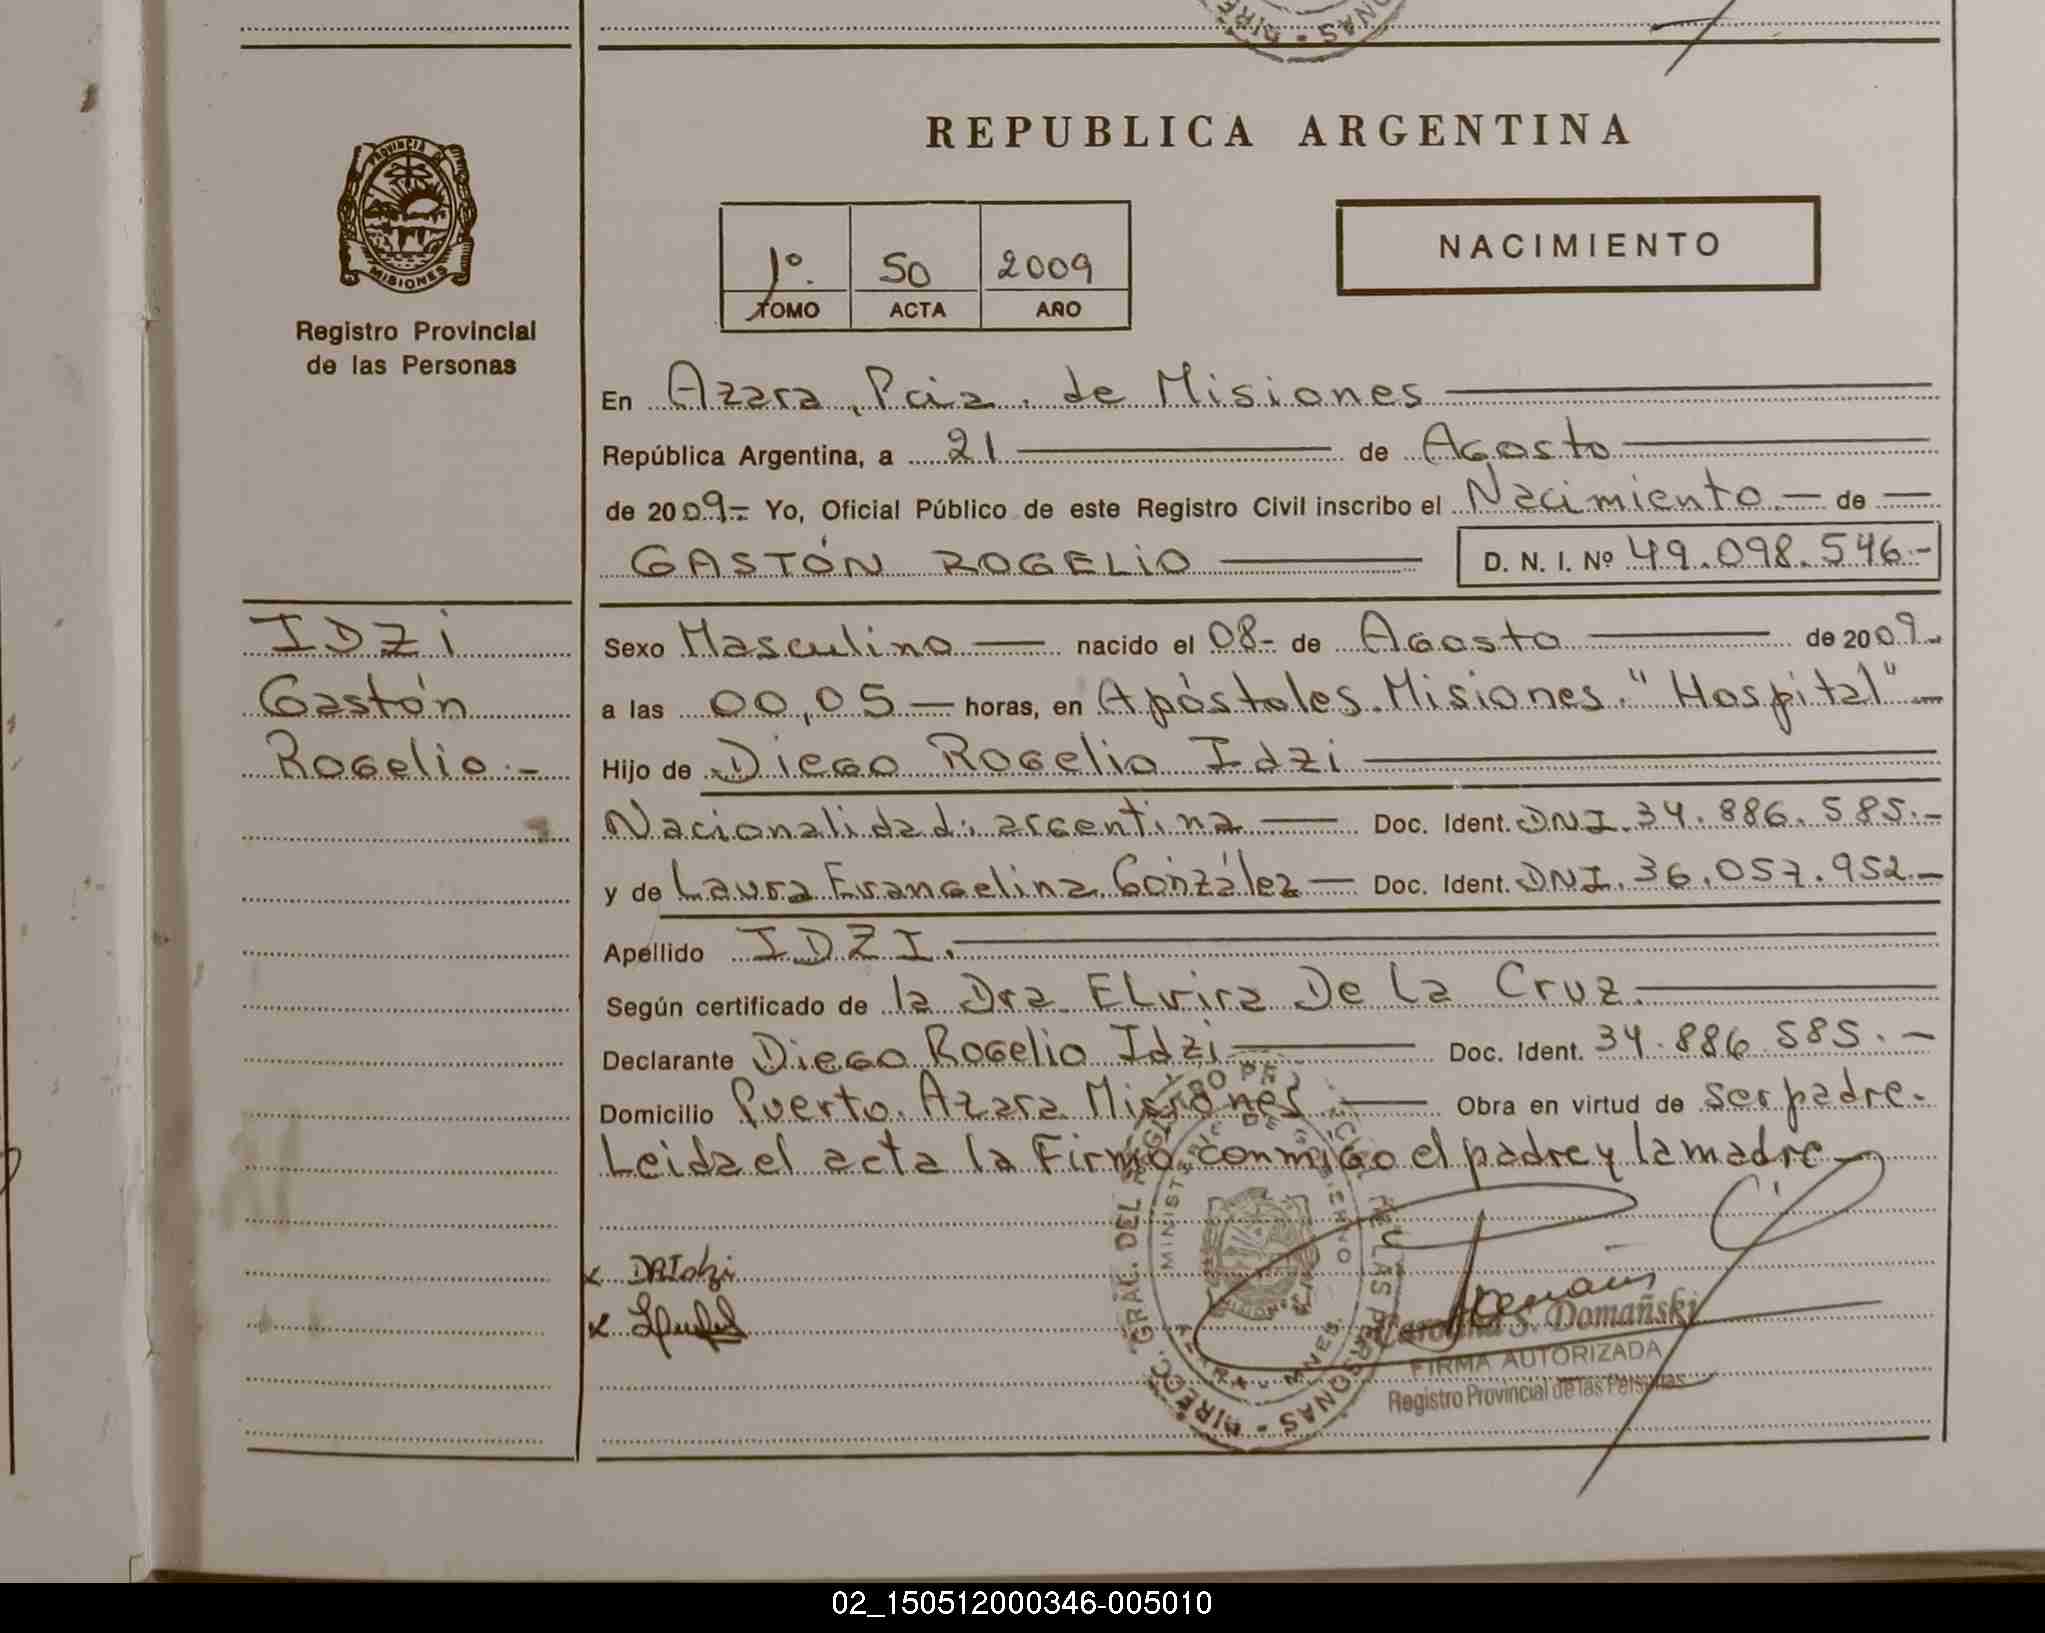 REPUBLICA ARGENTINA
PROVINCIA DE
MISIONES
Registro Provincial
de las Personas
1º.
50
2009
TOMO
ACTA
AÑO
NACIMIENTO
En Azara, Pcia. de Misiones
República Argentina, a 21 de Agosto
de 2009.- Yo, Oficial Público de este Registro Civil inscribo el Nacimiento.- de
GASTÓN ROGELIO D. N. I. Nº 49.098.546.-
IDZI
Gastón
Rogelio.-
Sexo Masculino nacido el 08- de Agosto de 2009.-
a las 00,05 horas, en Apóstoles. Misiones. "Hospital"
Hijo de Diego Rogelio Idzi
Nacionalidad: argentina Doc. Ident. DNI. 34.886.585.-
y de Laura Evangelina González Doc. Ident. DNI. 36.057.952.-
Apellido IDZI.
Según certificado de la Dra. ELvira De La Cruz.
Declarante Diego Rogelio Idzi Doc. Ident. 34.886.585.-
Domicilio Puerto Azara Misiones Obra en virtud de ser padre.
Leida el acta la Firmó conmigo el padre y la madre
x DRIdzi
x
DIREC. GRAL. DEL REGISTRO PROVINCIAL DE LAS PERSONAS
MINISTERIO DE GOBIERNO
AZARA - MNES.
Carolina S. Domañski
FIRMA AUTORIZADA
Registro Provincial de las Personas
02_150512000346-005010